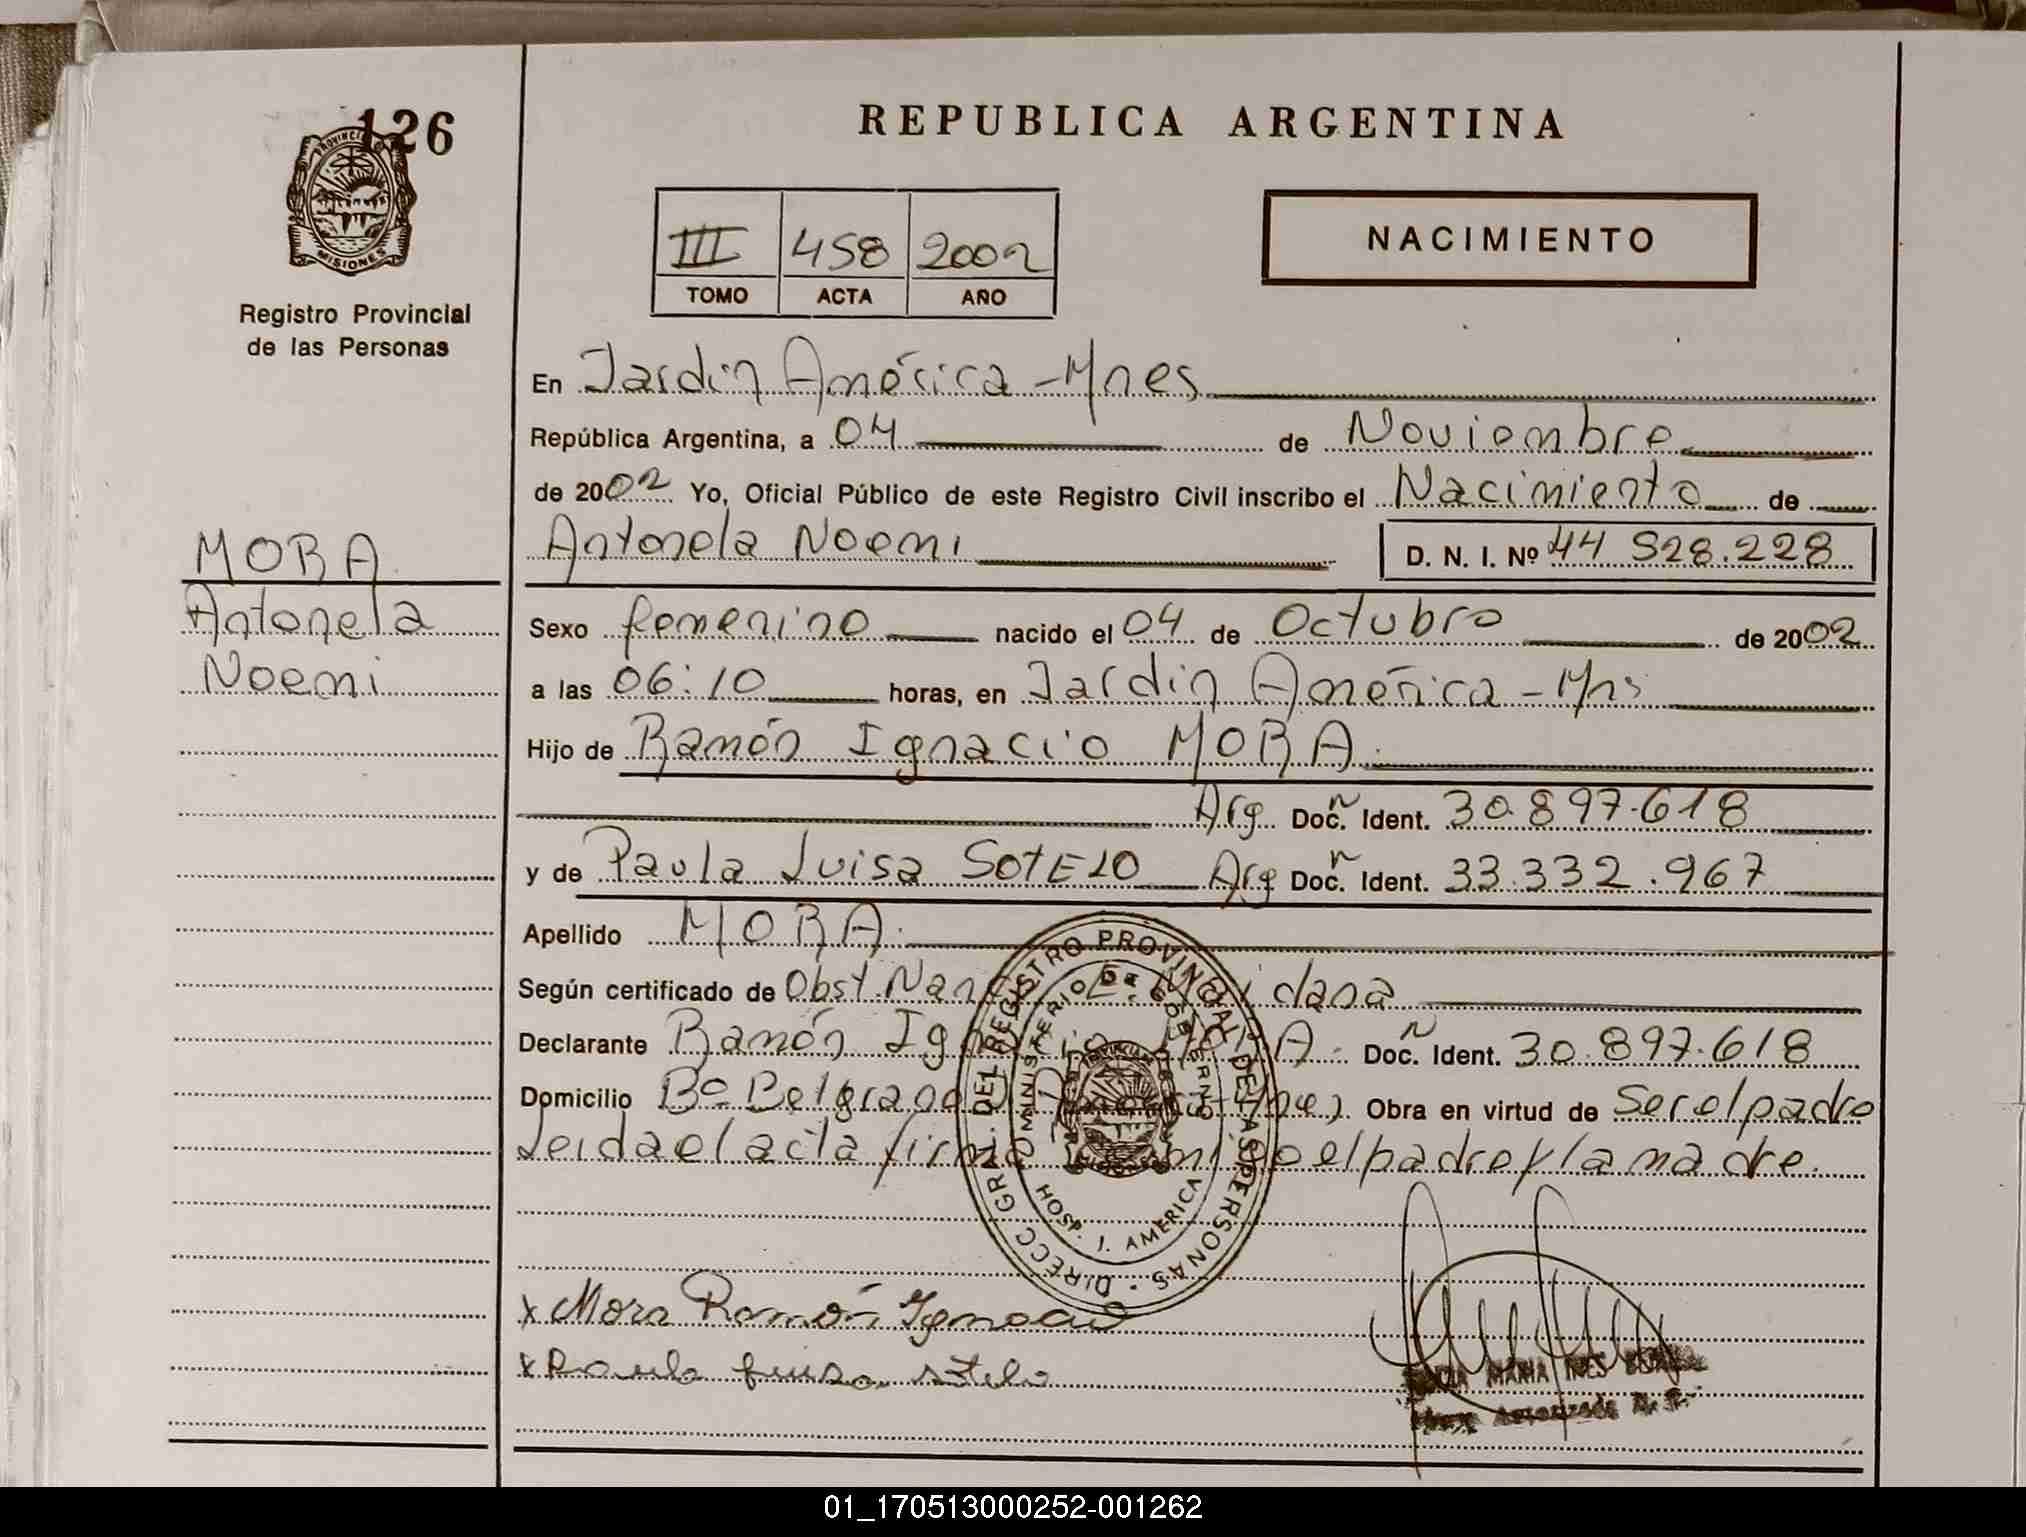 126
PROVINCIA
MISIONES
Registro Provincial
de las Personas
REPUBLICA ARGENTINA
III 458 2002
TOMO ACTA AÑO
NACIMIENTO
En Jardin América - Mnes
República Argentina, a 04 de Noviembre
de 2002 Yo, Oficial Público de este Registro Civil inscribo el Nacimiento de
Antonela Noemi D. N. I. Nº 44 528.228
MORA
Antonela
Noemi
Sexo femenino nacido el 04 de Octubro de 2002
a las 06:10 horas, en Jardin América - Mns
Hijo de Ramón Ignacio MORA
Arg Doc. Ident. 30.897.618
y de Paula Luisa SOTELO Arg Doc. Ident. 33.332.967
Apellido MORA
Según certificado de Obst. E. dana
Declarante Ramón MORA Doc. Ident. 30.897.618
Domicilio Bº Belgrano Obra en virtud de Ser el padre
Leida el acta el padre y la madre.
DIRECC GRAL. DEL REGISTRO PROVINCIAL DE LAS PERSONAS
MINISTERIO DE GOBIERNO
HOSP. J. AMERICA
x Mora Ramón Ignacio
x Paula Luisa Sotelo
MARIA INES
Autorizada
01_170513000252-001262